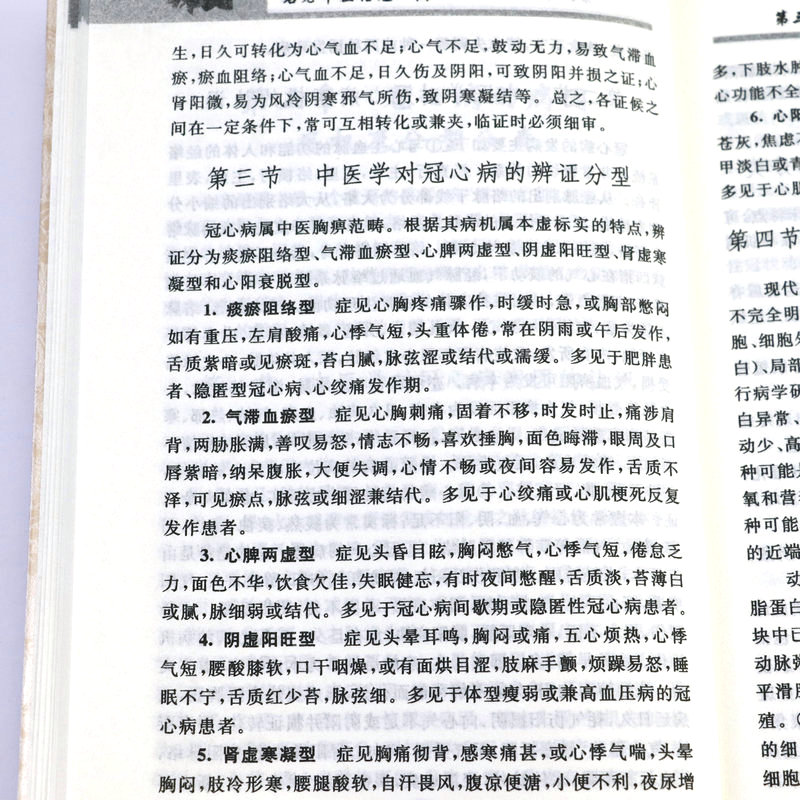 生,日久可转化为心气血不足;心气不足,鼓动无力,易致气滞血
瘀,瘀血阻络;心气血不足,日久伤及阴阳,可致阴阳并损之证;心
肾阳微,易为风冷阴寒邪气所伤,致阴寒凝结等。总之,各证候之
间在一定条件下,常可互相转化或兼夹,临证时必须细审。
第三节 中医学对冠心病的辨证分型
冠心病属中医胸痹范畴。根据其病机属本虚标实的特点,辨
证分为痰瘀阻络型、气滞血瘀型、心脾两虚型、阴虚阳旺型、肾虚寒
凝型和心阳衰脱型。
1. 痰瘀阻络型 症见心胸疼痛骤作,时缓时急,或胸部憋闷
如有重压,左肩酸痛,心悸气短,头重体倦,常在阴雨或午后发作,
舌质紫暗或见瘀斑,苔白腻,脉弦涩或结代或濡缓。多见于肥胖患
者、隐匿型冠心病、心绞痛发作期。
2. 气滞血瘀型 症见心胸刺痛,固着不移,时发时止,痛涉肩
背,两胁胀满,善叹易怒,情志不畅,喜欢捶胸,面色晦滞,眼周及口
唇紫暗,纳呆腹胀,大便失调,心情不畅或夜间容易发作,舌质不
泽,可见瘀点,脉弦或细涩兼结代。多见于心绞痛或心肌梗死反复
发作患者。
3. 心脾两虚型 症见头昏目眩,胸闷憋气,心悸气短,倦怠乏
力,面色不华,饮食欠佳,失眠健忘,有时夜间憋醒,舌质淡,苔薄白
或腻,脉细弱或结代。多见于冠心病间歇期或隐匿性冠心病患者。
4. 阴虚阳旺型 症见头晕耳鸣,胸闷或痛,五心烦热,心悸
气短,腰酸膝软,口干咽燥,或有面烘目涩,肢麻手颤,烦躁易怒,睡
眠不宁,舌质红少苔,脉弦细。多见于体型瘦弱或兼高血压病的冠
心病患者。
5. 肾虚寒凝型 症见胸痛彻背,感寒痛甚,或心悸气喘,头晕
胸闷,肢冷形寒,腰腿酸软,自汗畏风,腹凉便溏,小便不利,夜尿增
多,下肢水肿
心功能不全
6. 心阳
苍灰,焦虑不
甲淡白或青
多见于心肌
第四节
现代
不完全明
胞、细胞外
白)、局部
行病学研
白异常、
动少、高
种可能是
氧和营
种可能
的近端
动
脂蛋白
块中已
动脉粥
平滑肌
殖。
的细
细胞